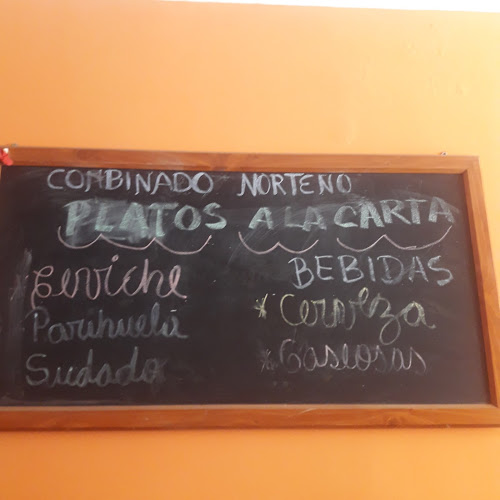 COMBINADO NORTEÑO
PLATOS A LA CARTA
Ceviche
Parihuela
Sudado
BEBIDAS
* Cerveza
* Gaseosas